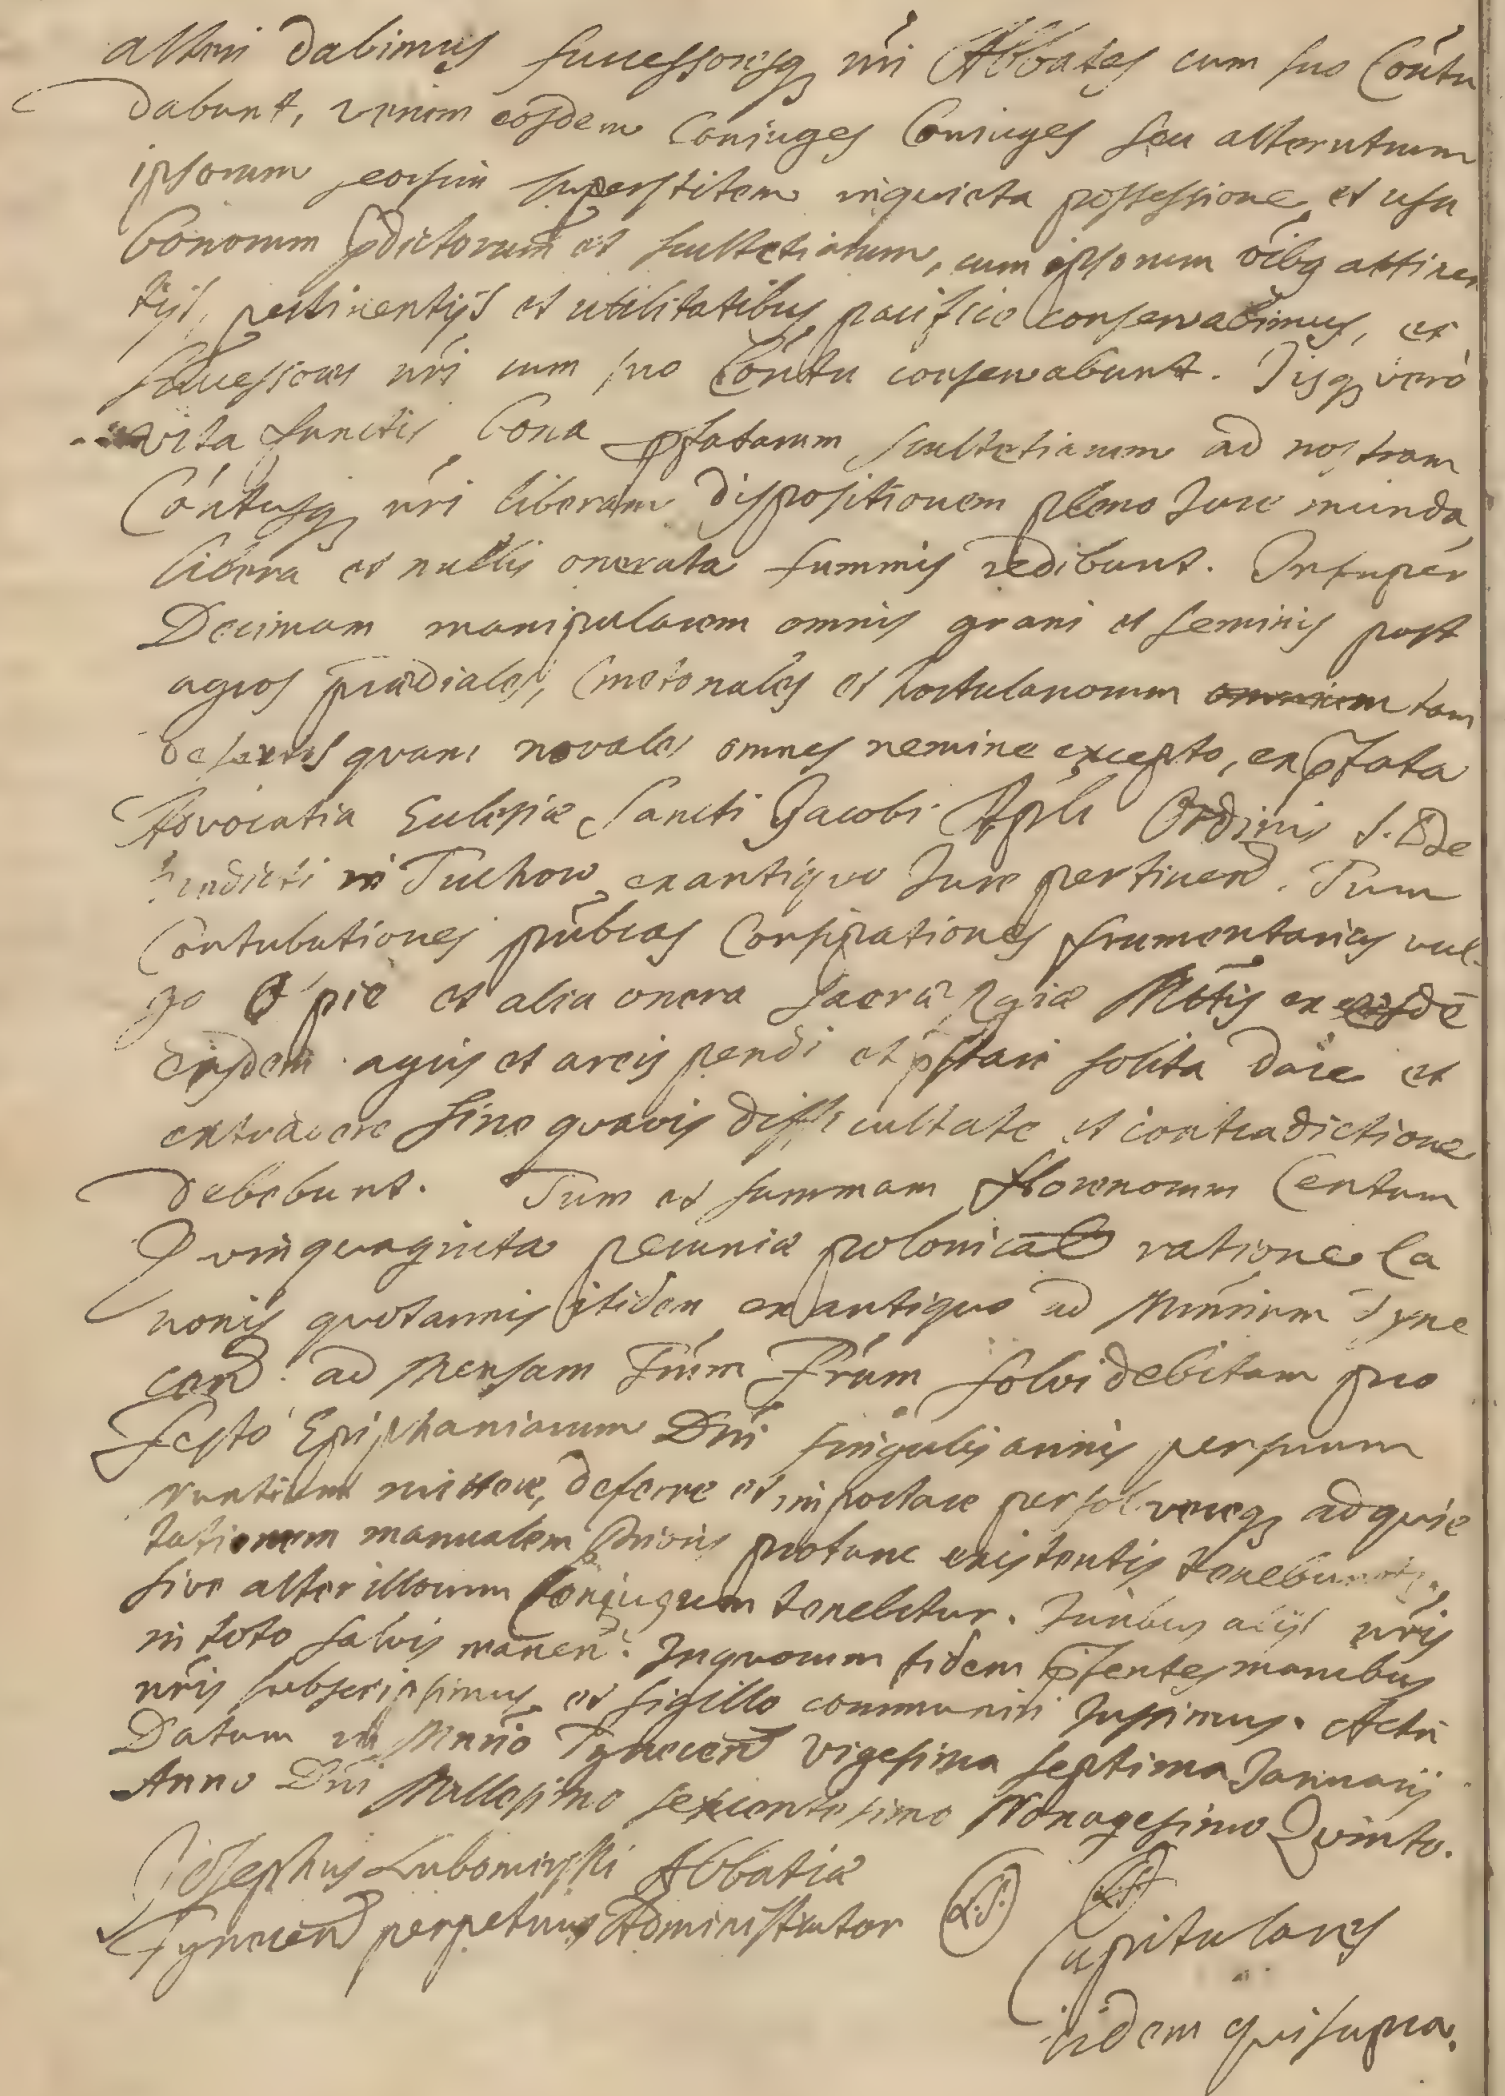 alteri dabimus successoresq nri Abbates cum suo Contu
dabunt, verum eosdem Coniuges Coniuges seu alterutrum
ipsorum seorsim superstitem in quieta possessione et usu
bonorum pdictorum et scultetiarum, cum ipsorum oibq attinen
tijs, pertinentijs et utilitatibus pacifice conservabimus, et
Successores nri cum suo Contu conservabunt. Ijsq vero
vita functis bona pfatarum scultetiarum ad nostram
Contusq nri liberam dispositionem pleno Jure munda,
libera et nullis onerata summis redibunt. Insuper
Decimam manipularem omnis grani et seminis post
agros prædiales, Cmetonales et hortulanorum tam
desertos quam novales omnes nemine excepto, ex pfata
Advocatia Eclesiæ Sancti Jacobi Apli Ordinis S. Be
nedicti in Tuchow ex antiquo Jure pertinend. Tum
Contributiones publicas Consipationes frumentarias vul-
go O pie et alia onera Sacræ Rgiæ Mttis ex
eisdem agris et areis pendi et pstari solita dare et
extradere sine quavis difficultate et contradictione
debebunt. Tum et summam florenorum Centum
Quinquaginta pecuniæ polonicæ ratione Ca
nonis quotannis itidem ex antiquo ad Mnrium Tyne
cen ad Mensam Frum Frum solvi debitam pro
festo Epiphaniarum Dni singulis annis per suum
nuntium mittere, deferre et importare persolvereq ad quie
tationem manualem Prioris protunc existentis tenebuntur,
sive alter illorum Conjugum tenebitur. Juribus alijs nris
in toto salvis manen. In quorum fidem pntes manibus
nris subscripsimus et sigillo communiri Jussimus. Actu
Datum in Mnrio Tynecen vigesima septima Januarij
Anno Dni Millesimo sexcentesimo Nonagesimo Quinto.
Josephus Lubomirski Abbatiæ
Tynecen perpetuus Administrator L.S. L.S.
Capitulares
iidem qui supra.